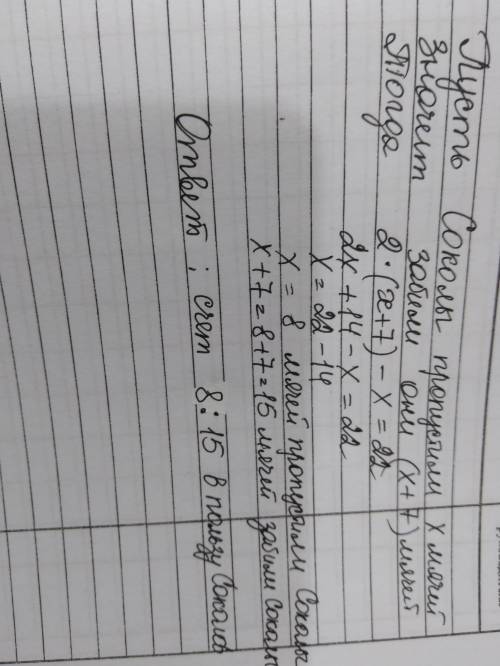 Пусть Соколы пропустили x мячей
значит забили они (x+7) мячей
Тогда 2·(x+7) - x = 22
2x + 14 - x = 22
x = 22 - 14
x = 8 мячей пропустили Соколы
x + 7 = 8 + 7 = 15 мячей забили Соколы
Ответ: счет 8:15 в пользу Соколов